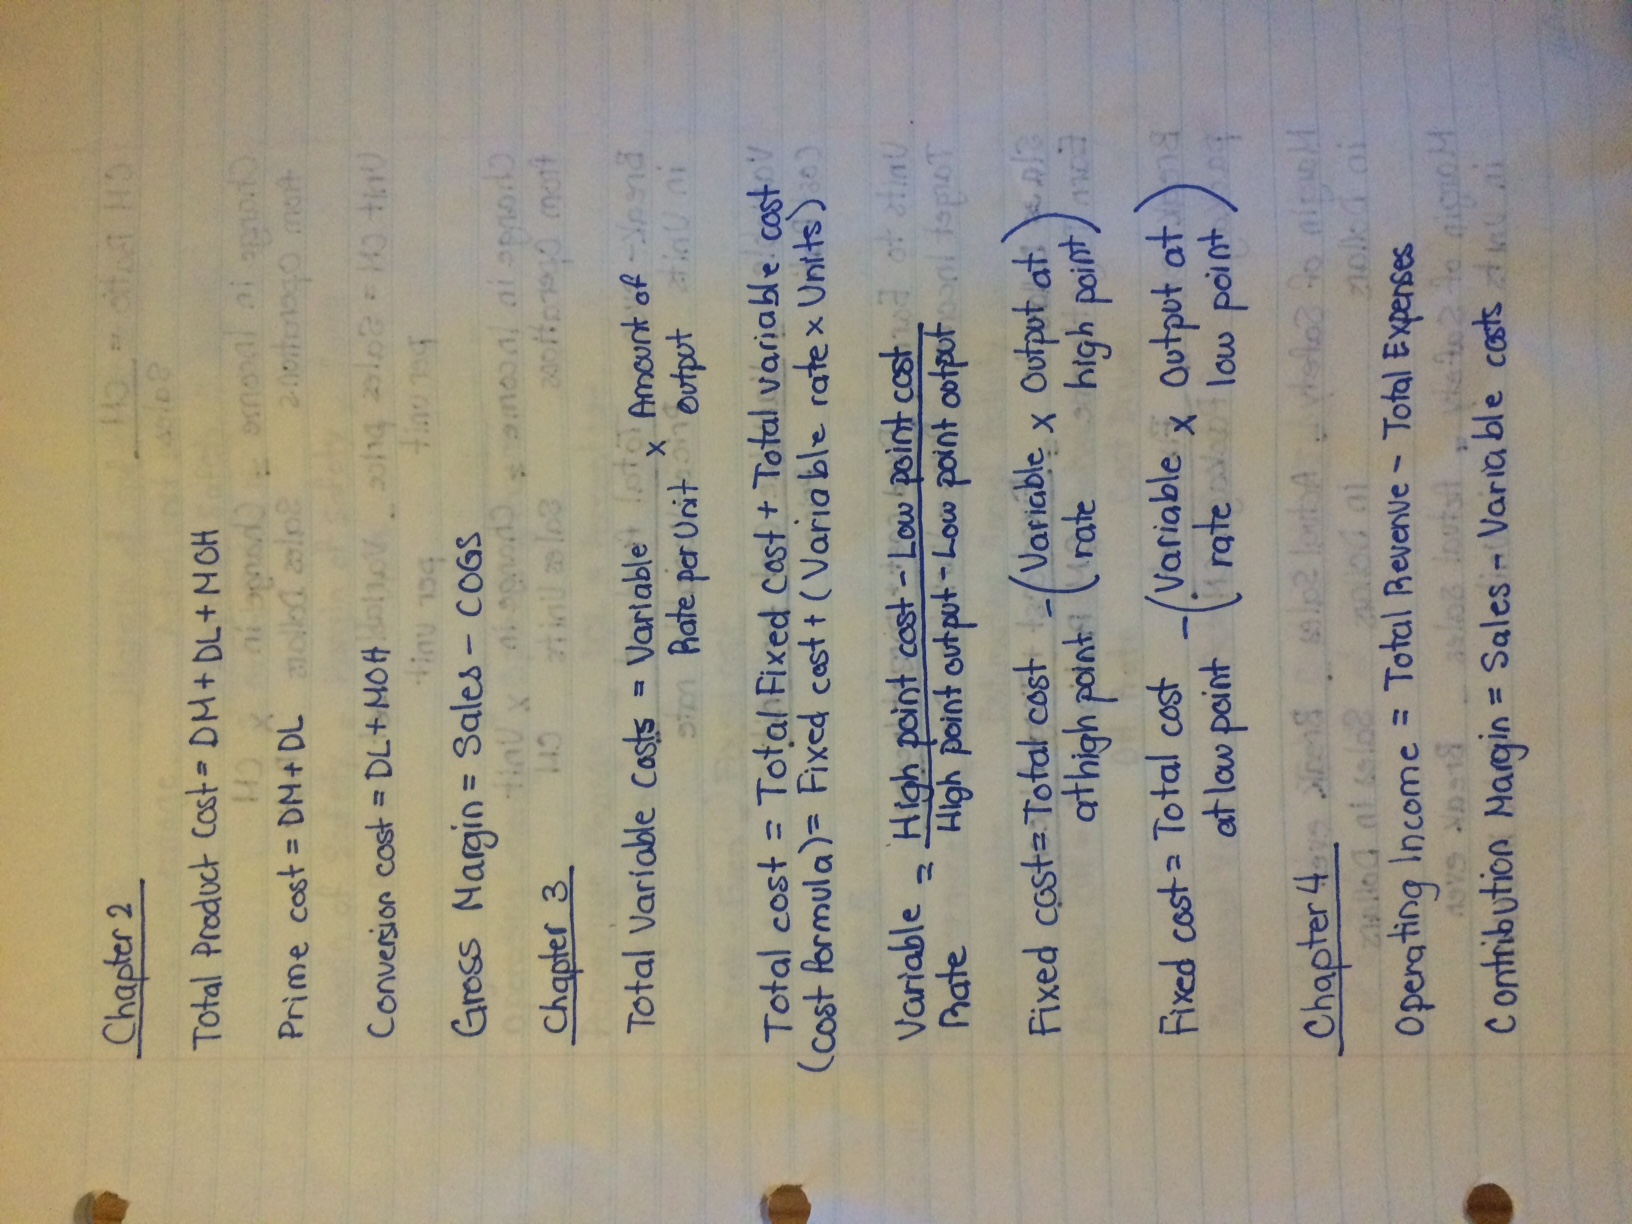 Chapter 2
Total Product Cost = DM + DL + MOH
Prime cost = DM + DL
Conversion cost = DL + MOH
Gross Margin = Sales - COGS
Chapter 3
Total Variable Costs = Variable x Amount of
Rate per Unit output
Total cost = Total Fixed cost + Total variable cost
(cost formula) = Fixed cost + (Variable rate x Units)
Variable = High point cost - Low point cost
Rate High point output - Low point output
Fixed cost = Total cost - (Variable x Output at)
at high point (rate high point)
Fixed cost = Total cost - (Variable x Output at)
at low point (rate low point)
Chapter 4
Operating Income = Total Revenue - Total Expenses
Contribution Margin = Sales - Variable costs